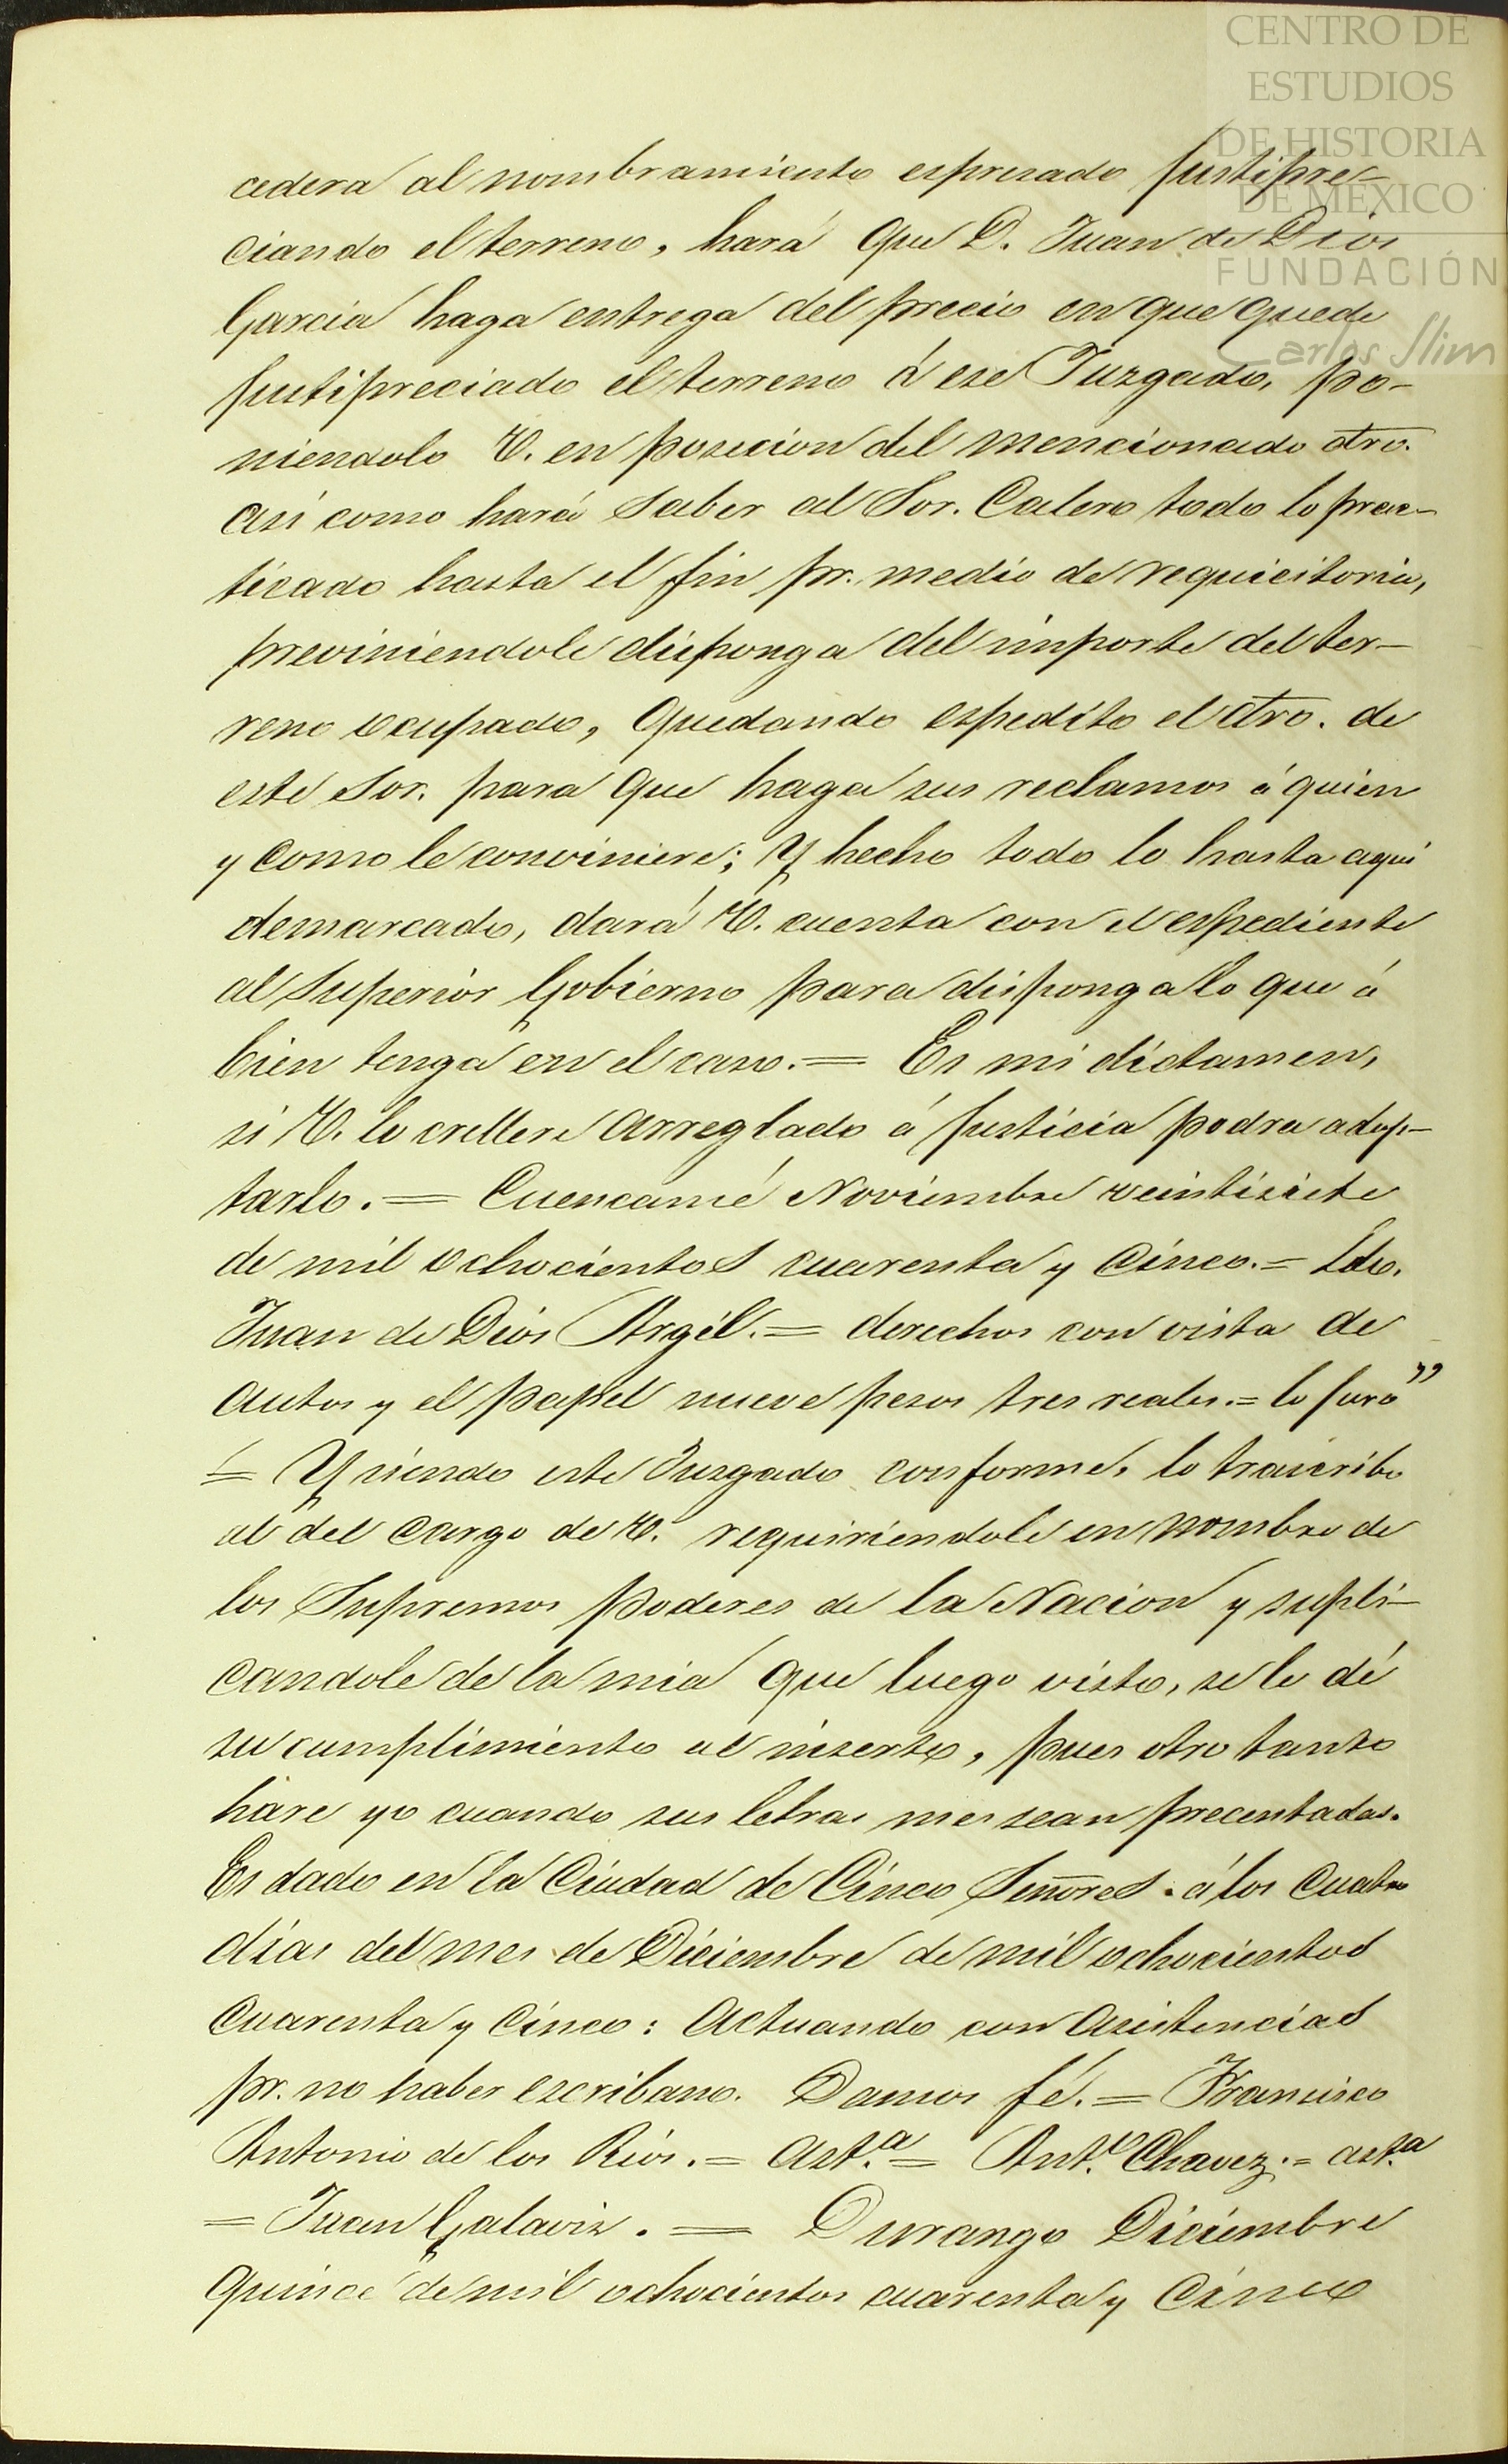 CENTRO DE
ESTUDIOS
DE HISTORIA
DE MÉXICO
FUNDACIÓN
Carlos Slim
cedera al nombramiento espresado justipre-
ciando el terreno, hará que D. Juan de Dios
Garcia haga entrega del precio en que quede
justipreciado el terreno á ese Juzgado, po-
niendolo V. en posecion del mencionado dro.
asi como hará saber al Sor. Calero todo lo prac-
ticado hasta el fin pr. medio de requicitoria,
previniendole disponga del importe del ter-
reno ocupado, quedando espedito el dro. de
este Sor. para que haga sus reclamos á quien
y como le conviniere; Y hecho todo lo hasta aqui
demarcado, dará V. cuenta con el espediente
al Superior Gobierno para disponga lo que á
bien tenga en el caso. = Es mi dictamen,
si V. lo crellere arreglado á justicia podra adop-
tarlo. = Cuencamé Noviembre veintisiete
de mil ochocientos cuarenta y cinco. = Ldo.
Juan de Dios Argil. = derechos con vista de
autos y el papel nueve pesos tres reales. = lo juro"
= Y siendo este Juzgado conforme, lo trascribo
al del cargo de V. requiriendole en nombre de
los Supremos poderes de la Nacion y supli-
candole de la mia que luego visto, se le dé
su cumplimiento al inserto, pues otro tanto
hare yo cuando sus letras me sean precentadas.
Es dado en la Ciudad de Cinco Señores á los cuatro
dias del mes de Diciembre de mil ochocientos
cuarenta y cinco: Actuando con asistencias
pr. no haber escribano. Damos fé. = Francisco
Antonio de los Rios. = Ast.a = Ant.o Chavez. = ast.a
= Juan Galaviz. = Durango Diciembre
quince de mil ochocientos cuarenta y cinco